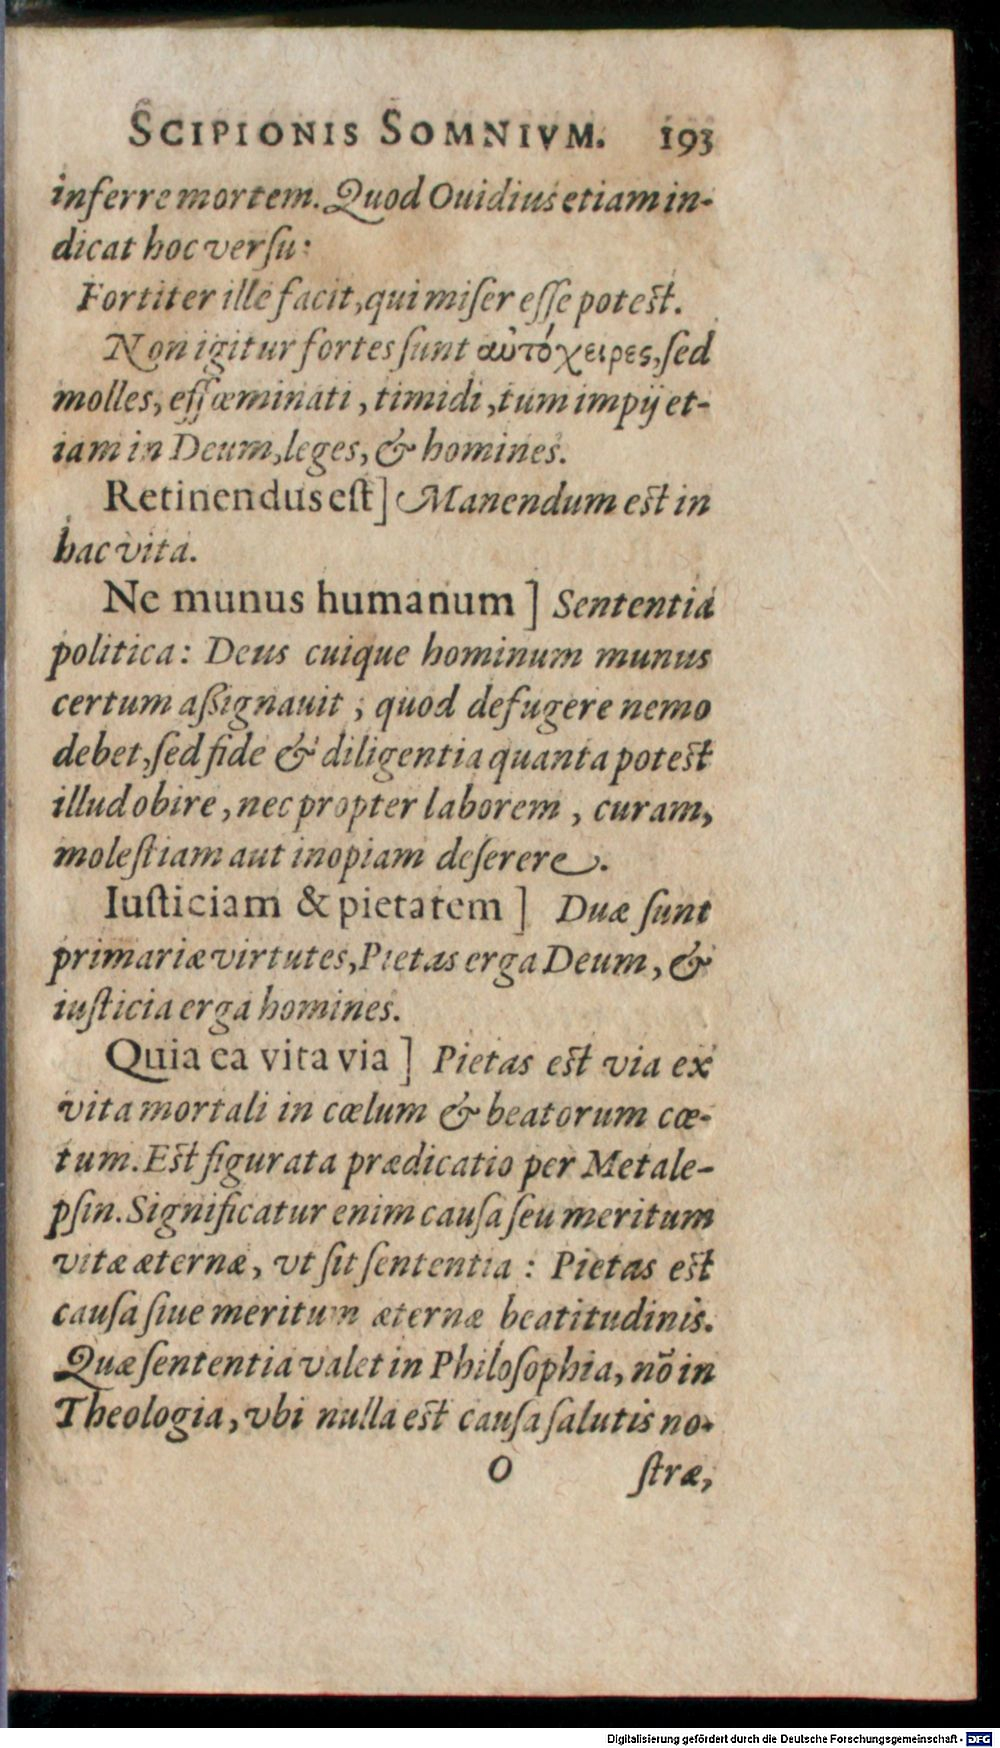 SCIPIONIS SOMNIVM. 193
inferre mortem. Quod Ouidius etiam in-
dicat hoc versu:
Fortiter ille facit, qui miser esse potest.
Non igitur fortes sunt αὐτόχειρες, sed
molles, effœminati, timidi, tum impij et-
iam in Deum, leges, & homines.
Retinendus est] Manendum est in
hac vita.
Ne munus humanum] Sententia
politica: Deus cuique hominum munus
certum assignauit; quod defugere nemo
debet, sed fide & diligentia quanta potest
illud obire, nec propter laborem, curam,
molestiam aut inopiam deserere.
Iusticiam & pietatem] Duæ sunt
primariæ virtutes, Pietas erga Deum, &
iusticia erga homines.
Quia ea vita via] Pietas est via ex
vita mortali in cœlum & beatorum cœ-
tum. Est figurata prædicatio per Metale-
psin. Significatur enim causa seu meritum
vitæ æternæ, vt sit sententia: Pietas est
causa siue meritum æternæ beatitudinis.
Quæ sententia valet in Philosophia, nō in
Theologia, vbi nulla est causa salutis no-
O stræ,
Digitalisierung gefördert durch die Deutsche Forschungsgemeinschaft - DFG